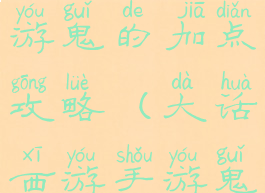 yóu guǐ de jiā diǎn
游鬼的加点
gōng lüè dà huà
攻略(大话
xī yóu shǒu yóu guǐ
西游手游鬼